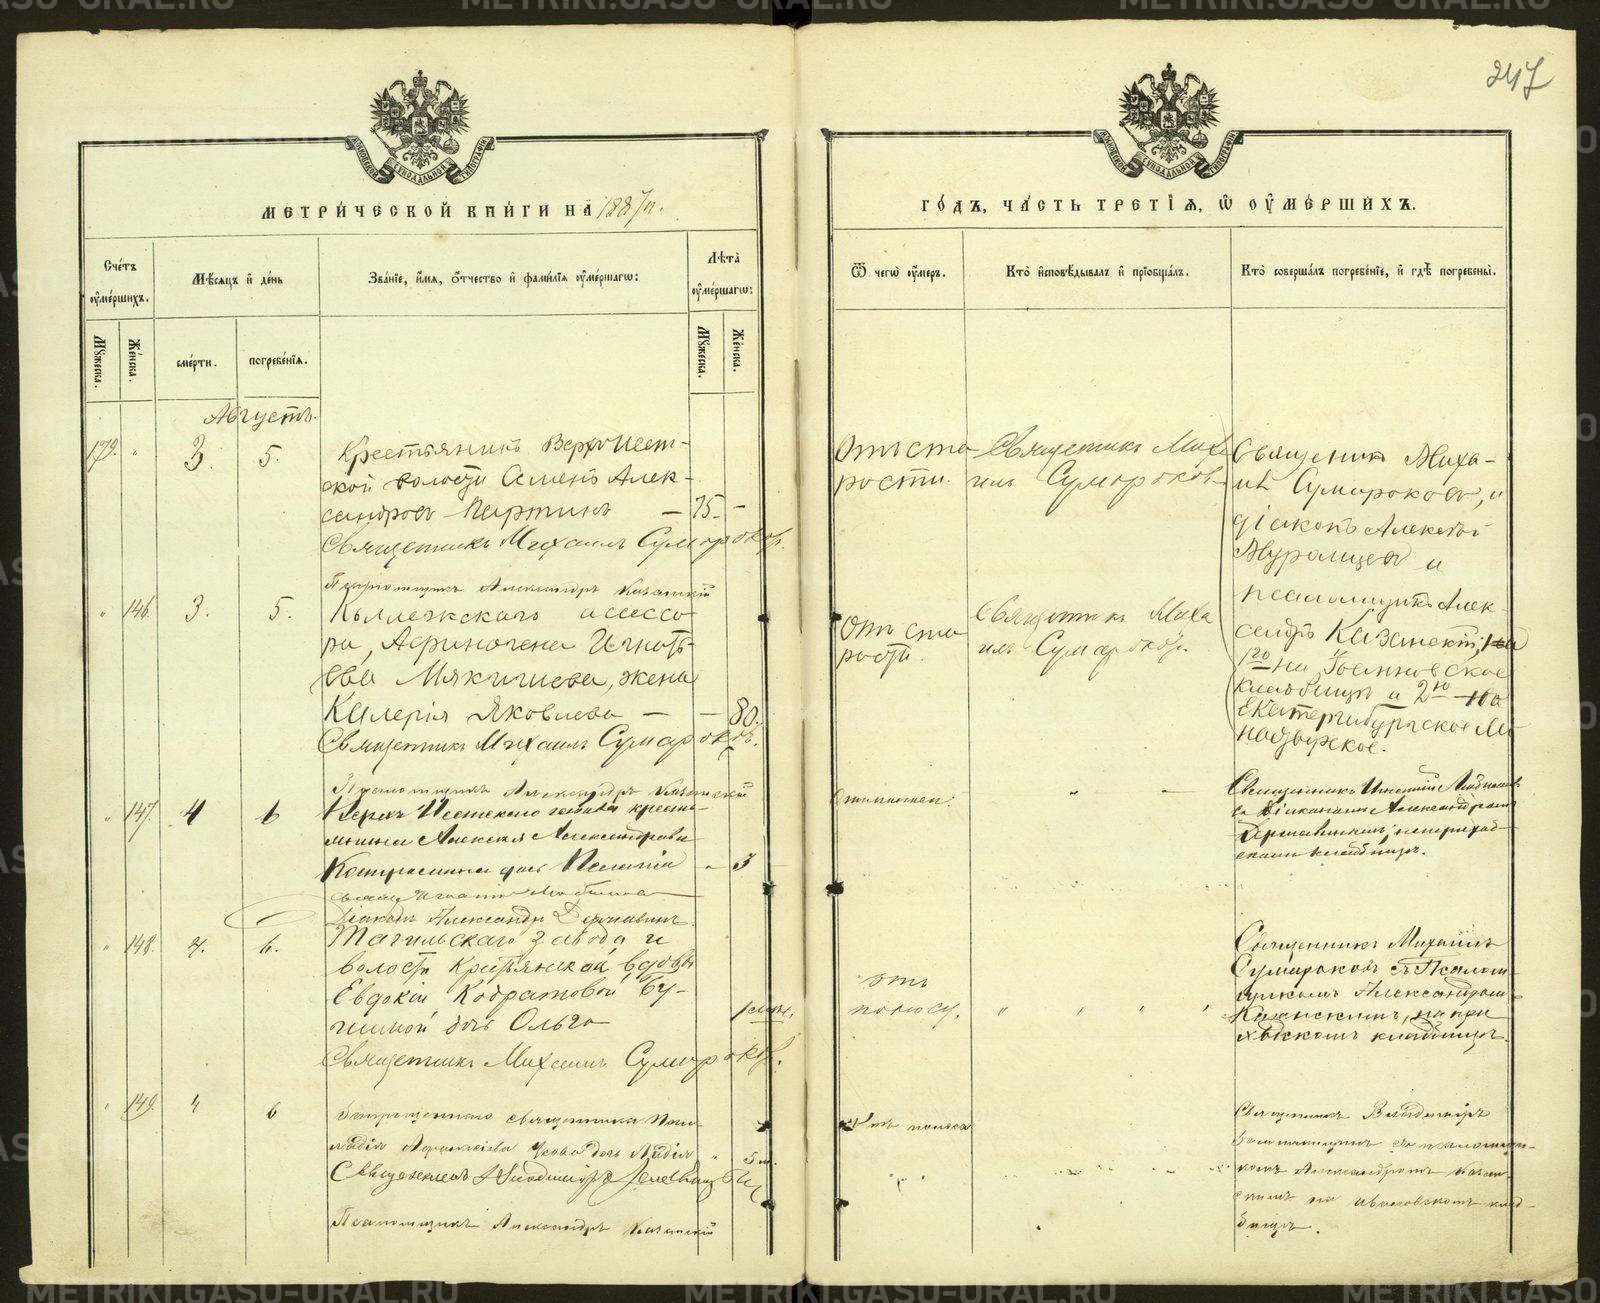 247
МЕТРИ́ЧЕСКОЙ КНИ́ГИ НА 1887 г.
Сче́тъ ѹ҆ме́ршихъ.
Мѣ́сяцъ и҆ де́нь
Зва́нїе, и҆́мя, ѻ҆́тчество и҆ фами́лїя ѹ҆ме́ршагѡ:
Лѣ́та ѹ҆ме́ршагѡ:
Мꙋ́жеска.
Же́нска.
сме́рти.
погребе́нїя.
Мꙋ́жеска.
Же́нска.
Августъ.
179. " 3. 5.
Крестьянинъ Верхъ Исет-
ской волости Семенъ Алек-
сандровъ Партинъ — 75. -
Священникъ Михаилъ Сумароковъ.
Псаломщикъ Александръ Казанскій
" 146. 3. 5.
Коллежскаго ассесо-
ра, Игнать-
ева Мякишева, жена
Калерія Яковлева — — 80.
Священникъ Михаилъ Сумароковъ.
Псаломщикъ Александръ Казанскій
" 147. 4 6
Верхъ Исетскаго завода кресть-
янина Алексѣя Александрова
дочь Пелагія " 3
Діаконъ Александръ Державинъ
" 148. 4. 6.
Тагильскаго завода и
волости Крестьянской вдовы
Евдокіи Кондратовой Бу-
дочь Ольга
Священникъ Михаилъ Сумароковъ.
" 149. 4 6
священника
дочь Лидія " 5 м.
Священникъ Владиміръ
Псаломщикъ Александръ Казанскій
ГО́ДЪ, ЧА́СТЬ ТРЕТЇЯ, Ѡ҆ ОУ҆МЕ́РШИХЪ.
Ѿ чегѡ̀ ѹ҆́меръ.
Кто̀ и҆сповѣ́дывалъ и҆ прїобща́лъ.
Кто̀ соверша́лъ погребе́нїе, и҆ гдѣ̀ погребены̀.
Отъ ста
рости.
Священникъ Миха
илъ Сумароковъ
Священникъ Миха-
илъ Сумароковъ, и
діаконъ Алексѣй
Муромцевъ и
псаломщикъ Алек-
сандръ Казанскій; 1-ва
1го на Іоанновское
кладбище и 2ю на
Екатеринбургское Мо
настырское.
Отъ ста
рости.
Священникъ Миха
илъ Сумароковъ.
" -
Священникъ Игнатій
съ Діакономъ Александромъ
Державинымъ, на приход-
скомъ кладбищѣ.
отъ
поносу.
Священникъ Михаилъ
Сумароковъ съ Псалом-
щикомъ Александромъ
Казанскимъ, на при
ходскомъ кладбищѣ.
Отъ поноса
Священникъ Владиміръ
съ псаломщи-
комъ Александромъ Казан-
скимъ на Ивановскомъ клад-
бищѣ.